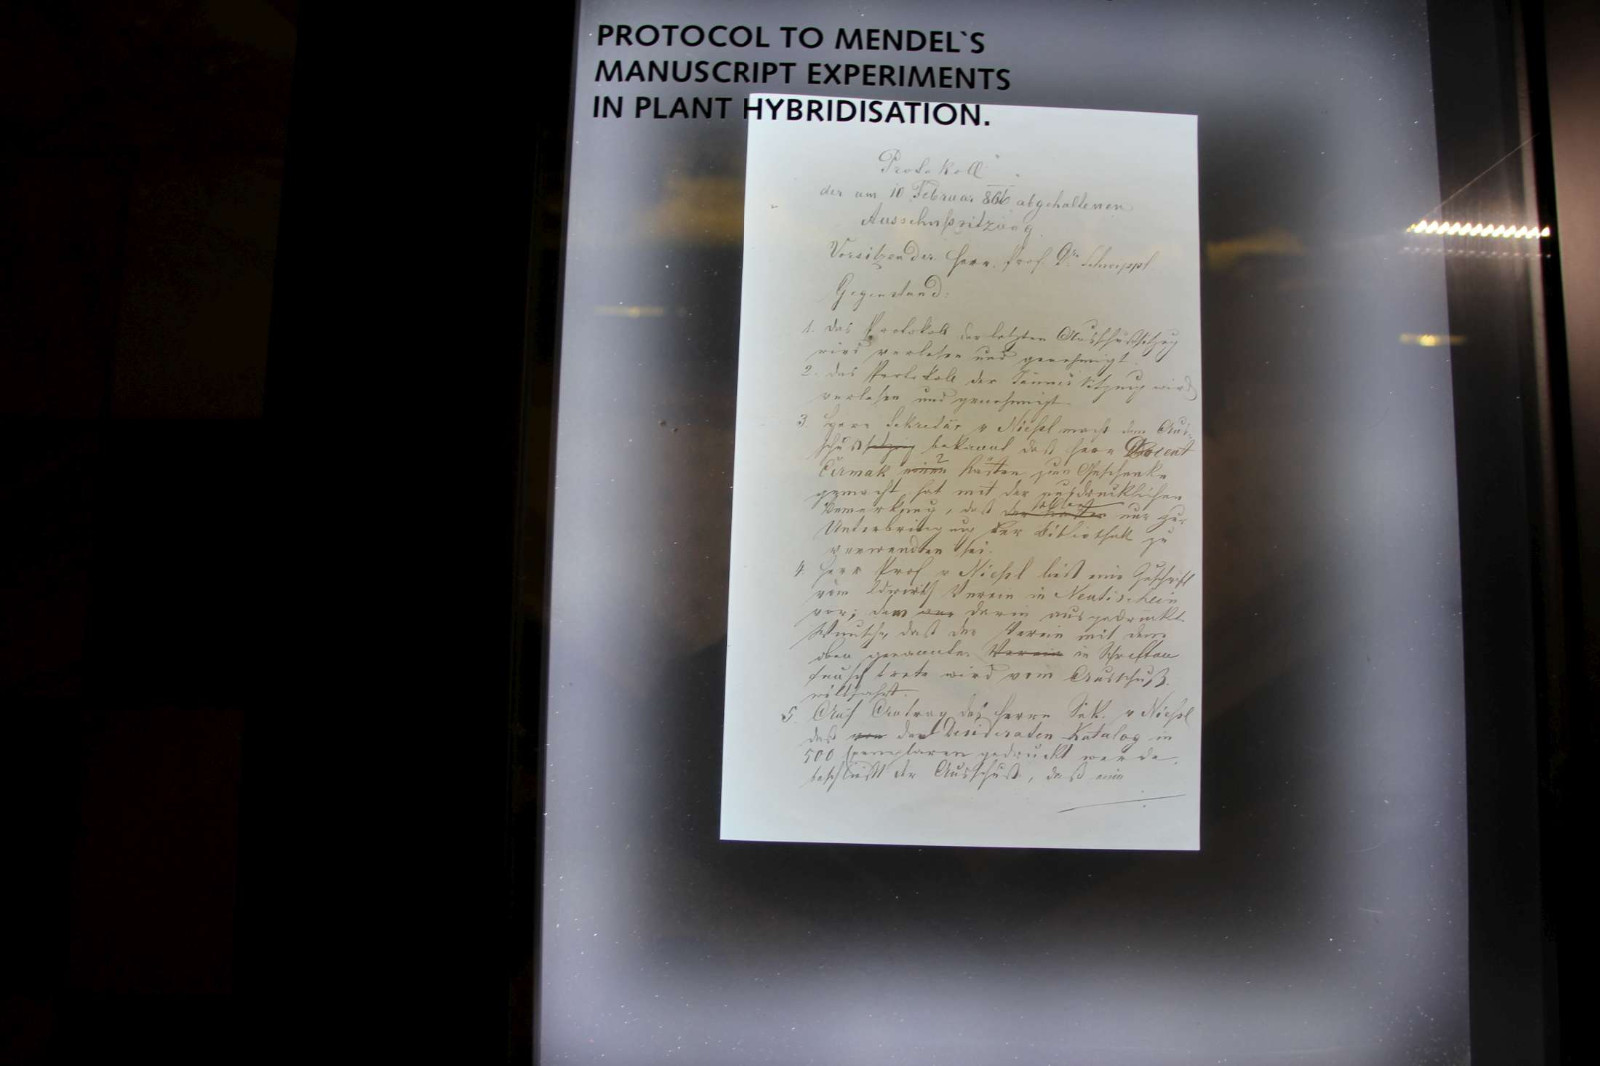 PROTOCOL TO MENDEL`S
MANUSCRIPT EXPERIMENTS
IN PLANT HYBRIDISATION.
Protokoll
der am 10 Februar 866 abgehaltenen
Ausschußsitzung
Vorsitzender Herr Prof. Dr Schwippl
Gegenstand:
1. Das Protokoll der letzten Ausschußsitzung
wird verlesen und genehmigt.
2. Das Protokoll der Sitzung wird
verlesen und genehmigt.
3. Herr Sekretär v Nießl macht dem Aus-
schuß bekannt daß Herr Docent
Čermak Kasten zum Geschenke
gemacht hat mit der ausdrücklichen
Bemerkung, daß nur zur
Unterbringung der Bibliothek zu
verwenden sei.
4. Herr Prof v Nießl liest eine Zuschrift
vom Verein in Neutitschein
vor; dem darin ausgedrückten
Wunsche, daß der Verein mit dem
oben genannten Verein in Schriften
tausch trete wird vom Ausschuß
willfahrt.
5. Auf Antrag des Herrn Sek. v Nießl
daß der Desideraten Katalog in
500 Exemplaren gedruckt werde,
beschließt der Ausschuß, daß ein